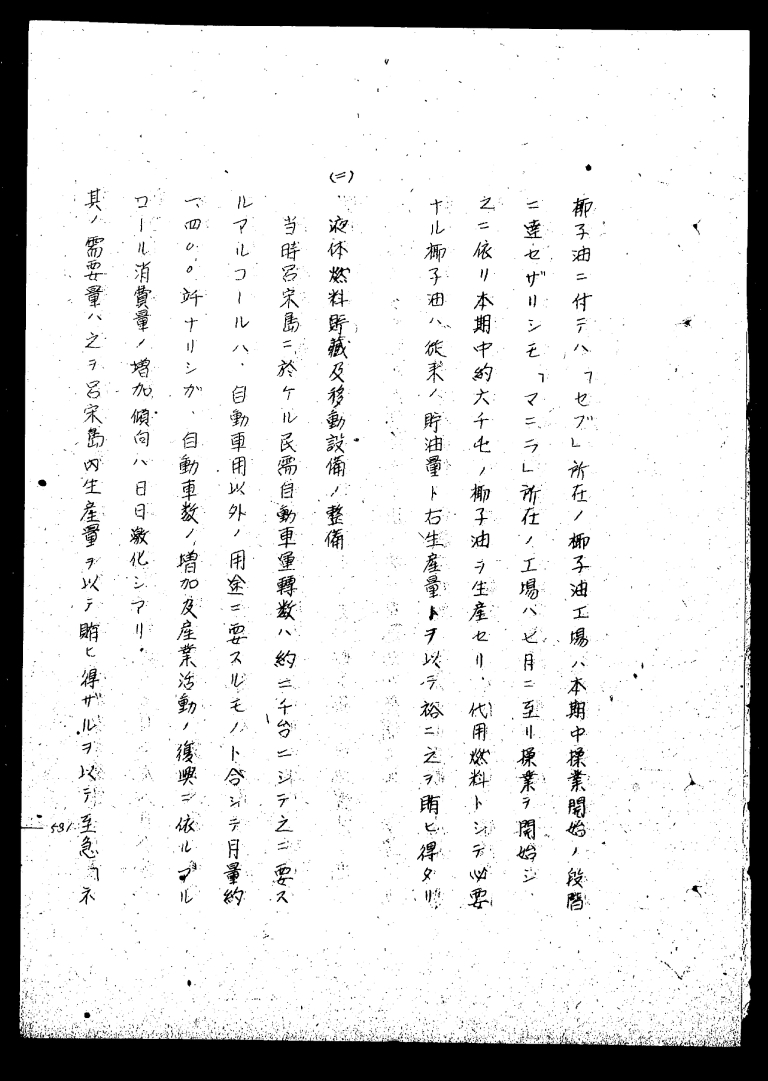 椰子油ニ付テハ「セブ」所在ノ椰子油工場ハ本期中操業開始ノ段階
ニ達セザリシモ「マニラ」所在ノ工場ハ七月ニ至リ操業ヲ開始シ
之ニ依リ本期中約六千屯ノ椰子油ヲ生産セリ、代用燃料トシテ必要
ナル椰子油ハ従来ノ貯油量ト右生産量トヲ以テ裕ニ之ヲ賄ヒ得タリ
(二)、液体燃料貯蔵及移動設備ノ整備
当時呂宋島ニ於ケル民需自動車運轉数ハ約二千台ニシテ之ニ要ス
ルアルコールハ、自動車用以外ノ用途ニ要スルモノト合シテ月量約
一、四〇〇竏ナリシガ、自動車数ノ増加及産業活動ノ復興ニ依ルアル
コール消費量ノ増加傾向ハ日日激化シアリ。
其ノ需要量ハ之ヲ呂宋島内生産量ヲ以テ賄ヒ得ザルヲ以テ至急「ネ
531